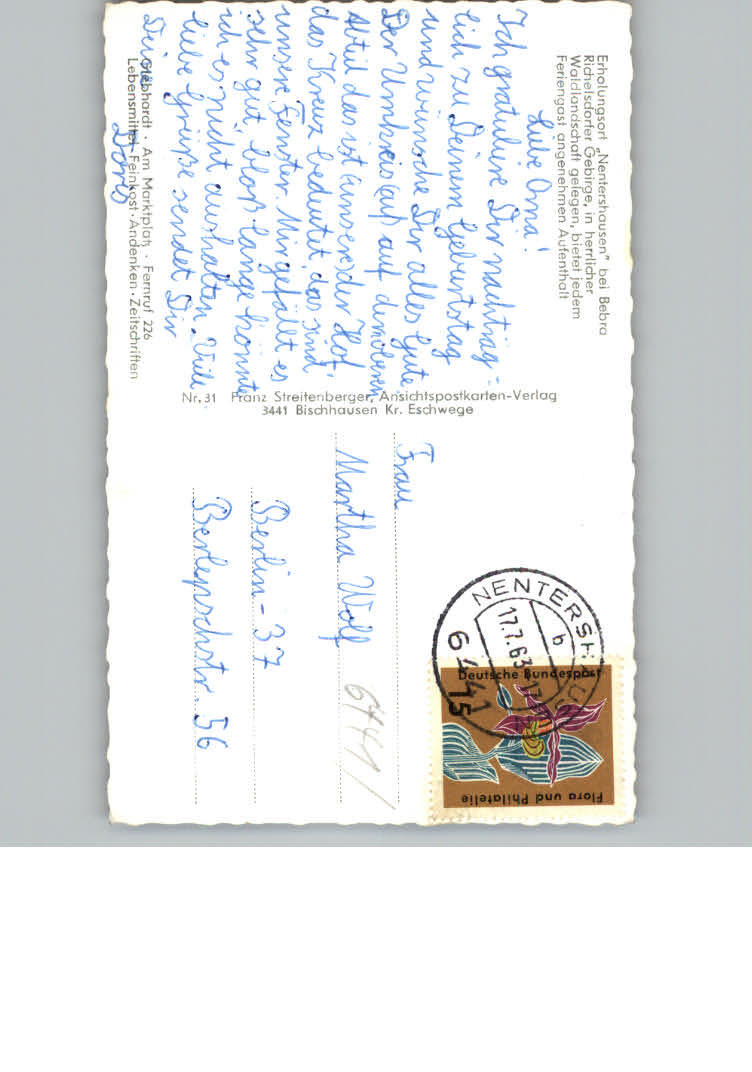 Erholungsort „Nentershausen" bei Bebra
Richelsdorfer Gebirge, in herrlicher
Waldlandschaft gelegen, bietet jedem
Feriengast angenehmen Aufenthalt
Liebe Oma!
Ich gratuliere Dir nachträg-
lich zu Deinem Geburtstag
und wünsche Dir alles Gute
Der Umkreis auf dem oberen
Abteil das ist unser der Hof,
das Kreuz bedeutet das sind
unsere Fenster. Mir gefällt es
sehr gut, bloß lange könnte
ich es nicht aushalten. Viele
liebe Grüße sendet Dir
Deine
Doris
Gebhardt · Am Marktplatz · Fernruf 226
Lebensmittel · Feinkost · Andenken · Zeitschriften
Nr. 31 Franz Streitenberger, Ansichtspostkarten-Verlag
3441 Bischhausen Kr. Eschwege
Frau
Martha Wolf
Berlin-37
Berlepschstr. 56
6441
NENTERSHAUSEN
b
17.7.63
6441
Deutsche Bundespost
15
Flora und Philatelie